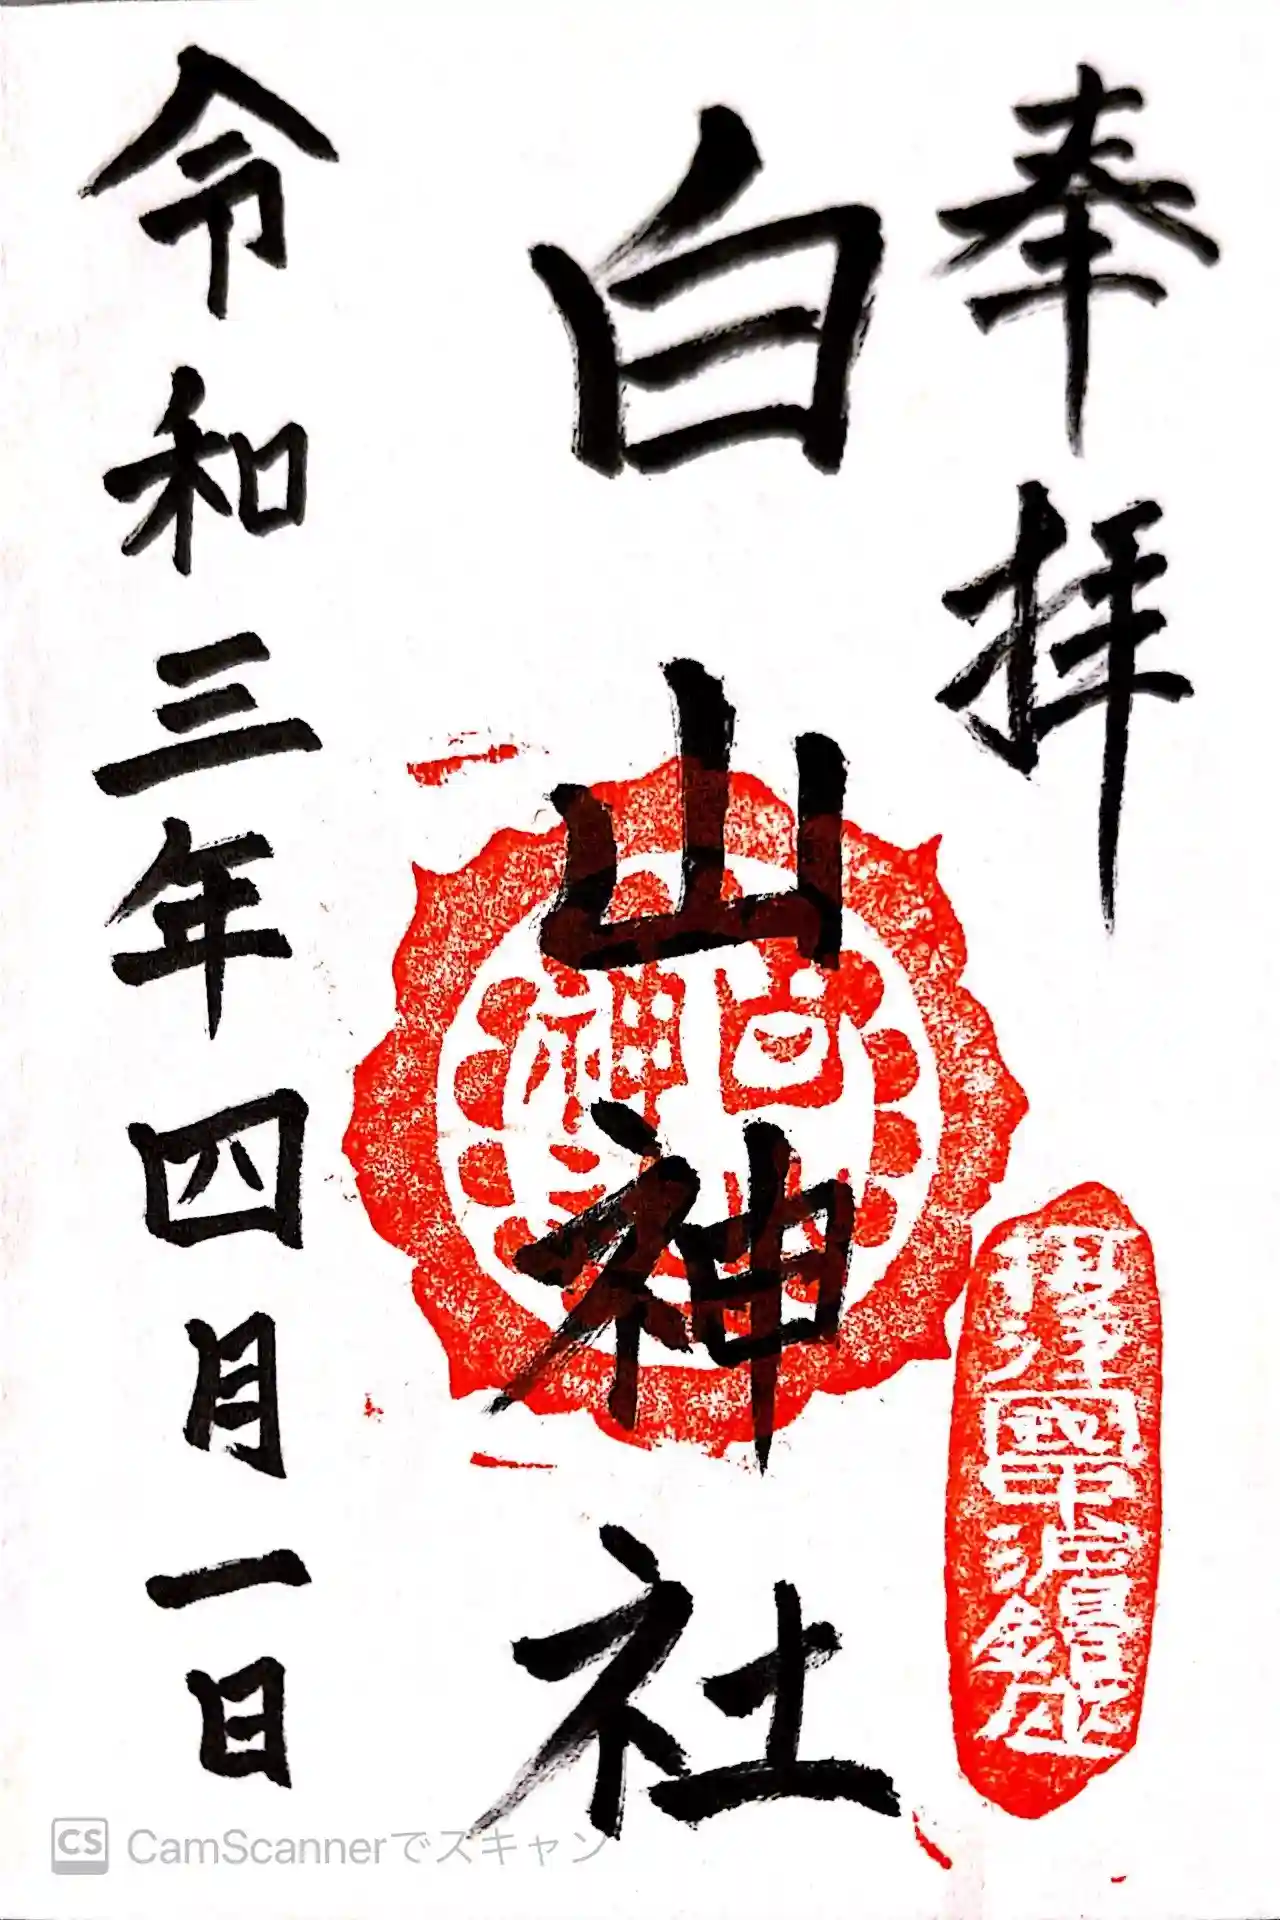 奉拝
白山神社
令和三年四月一日
白山神社
摂津國中泊鎮座
CS CamScannerでスキャン